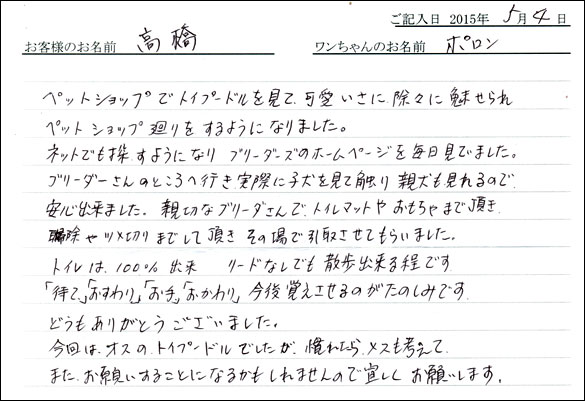 ご記入日 2015年 5月4日
お客様のお名前 高橋 ワンちゃんのお名前 ポロン
ペットショップでトイプードルを見て、可愛いさに除々に魅せられ
ペットショップ廻りをするようになりました。
ネットでも探すようになり ブリーダーズのホームページを毎日見てました。
ブリーダーさんのところへ行き、実際に子犬を見て触り 親犬も見れるので、
安心出来ました。親切なブリーダさんで、トイレマットや おもちゃまで頂き
除やツメ切りまでして頂き その場で引取させてもらいました。
トイレは、100% 出来 リードなしでも散歩出来る程です
「待て」「おすわり」「お手」「おかわり」今後覚えさせるのがたのしみです
どうもありがとうございました。
今回は、オスのトイプードルでしたが、慣れたら、メスも考えて、
また、お願いすることになるかもしれませんので宜しくお願いします。